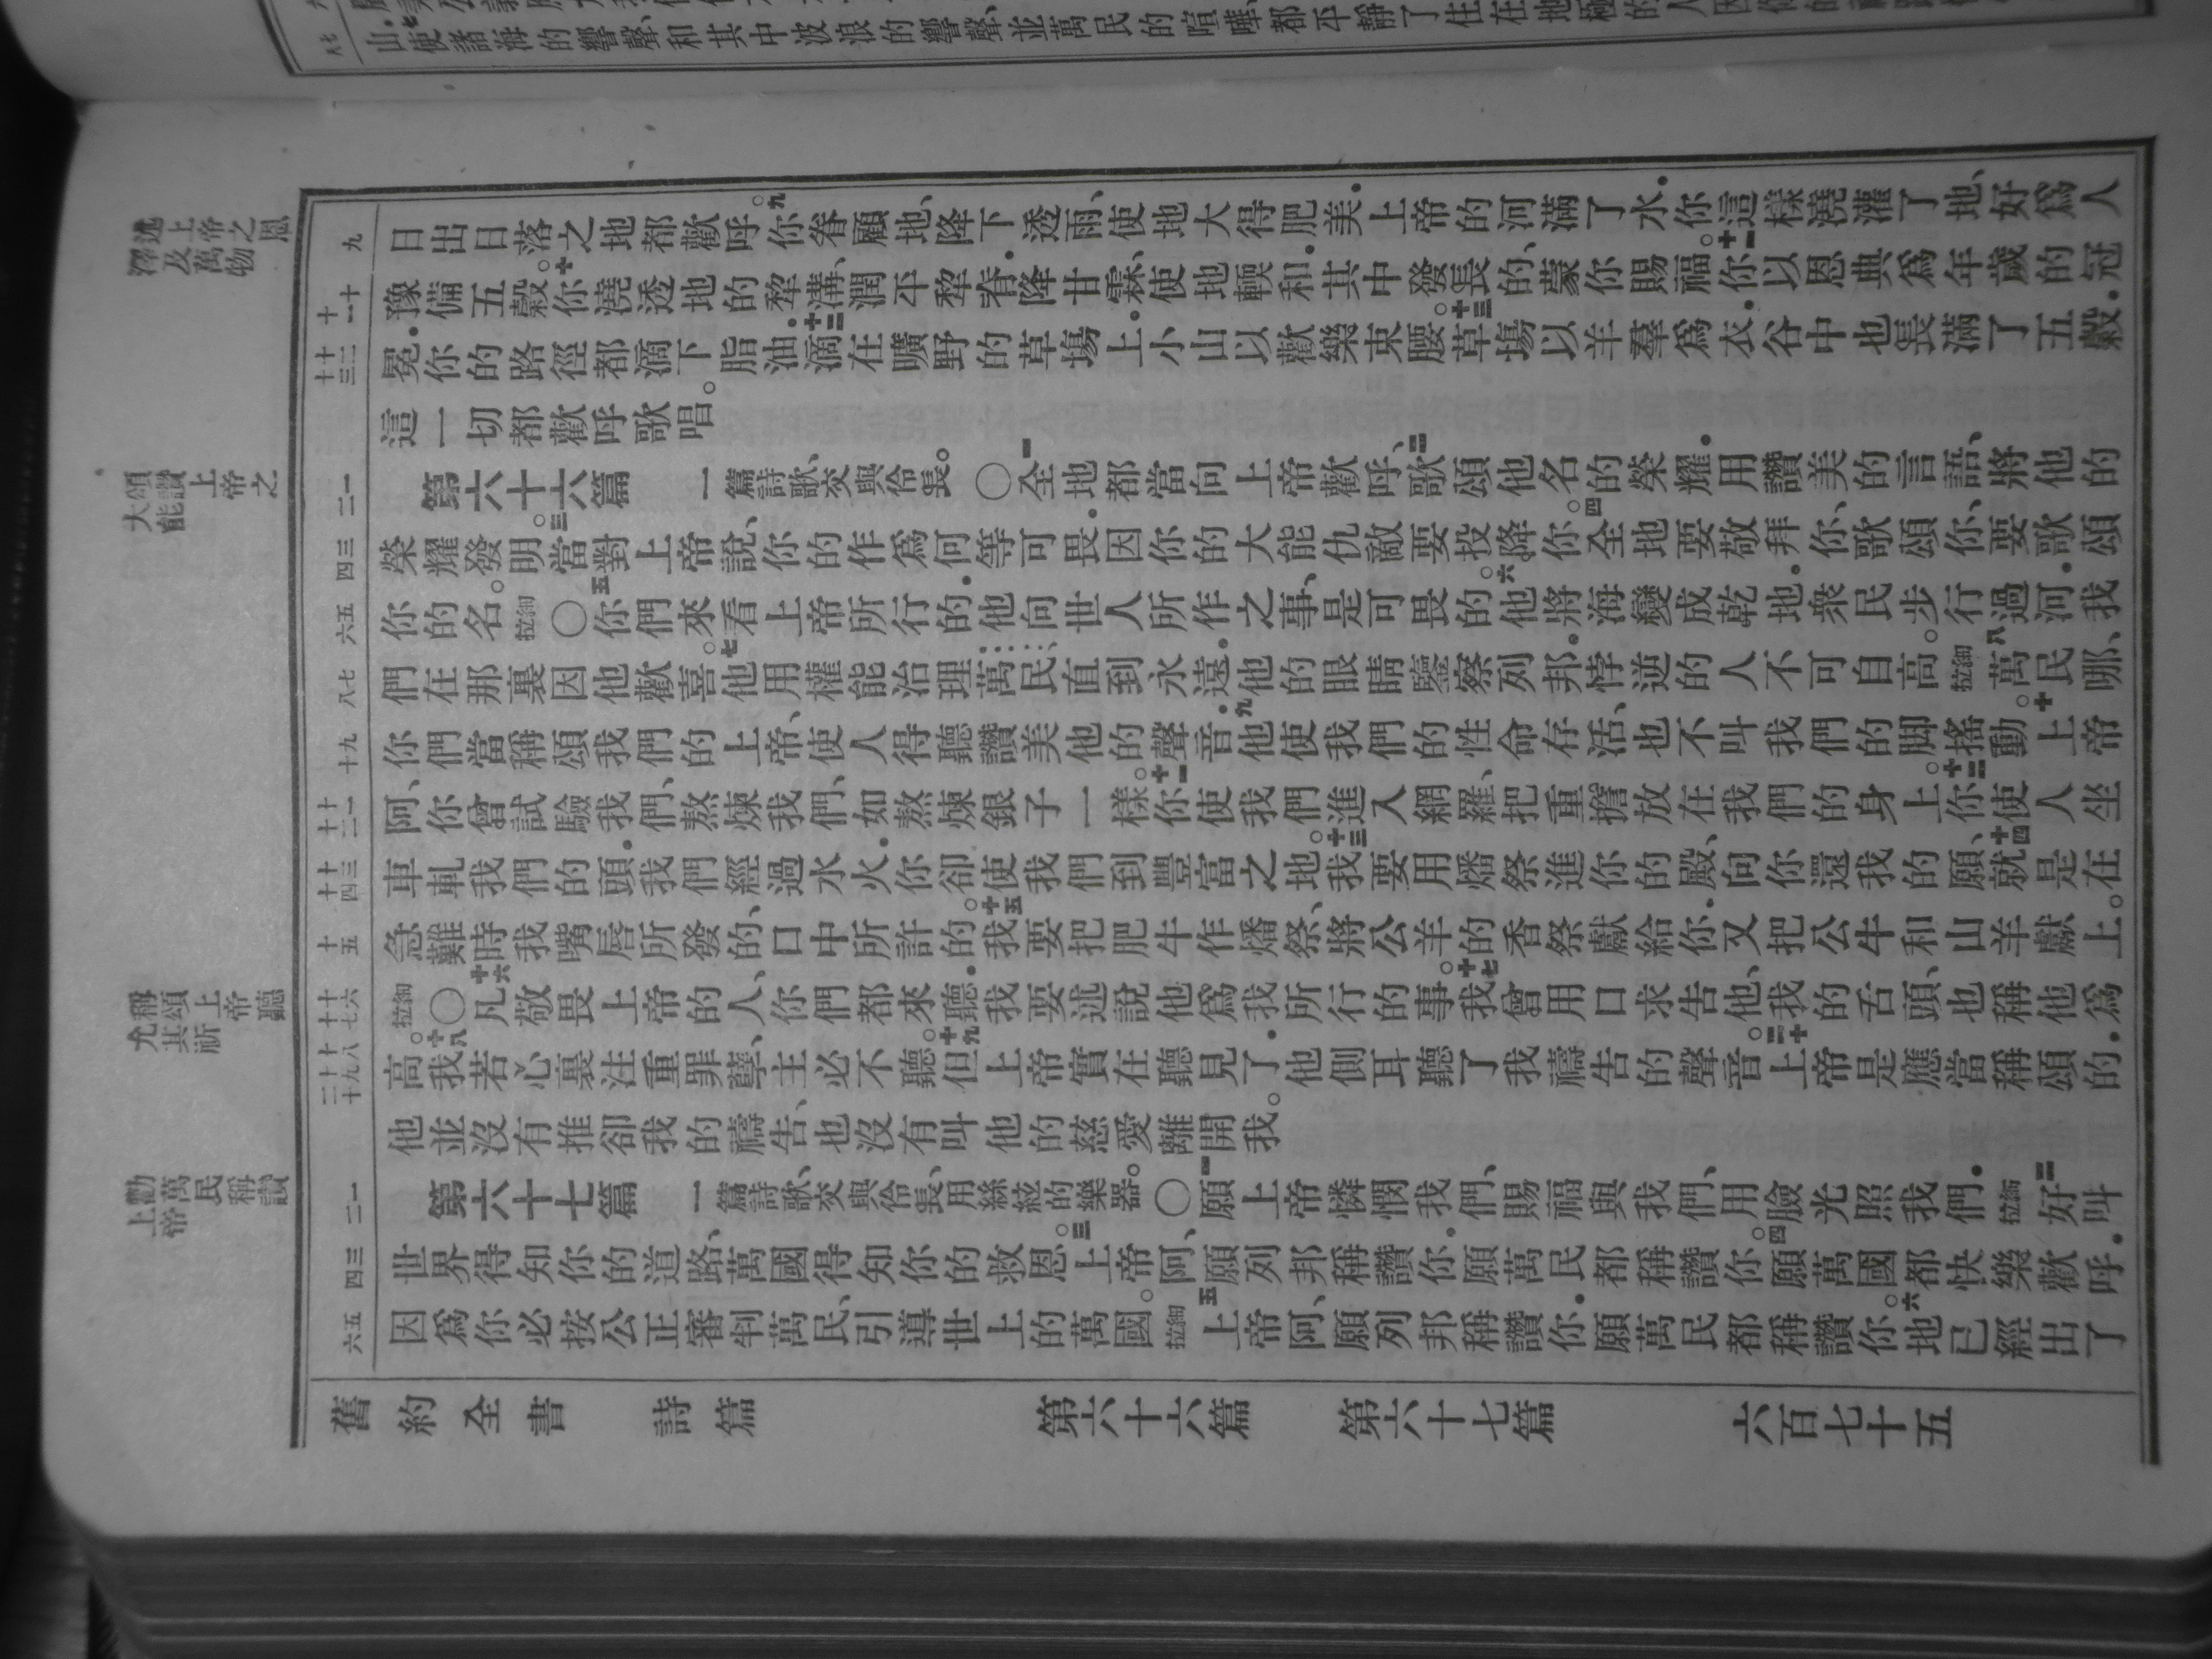 山。七使諸海的響聲、和其中波浪的響聲、並萬民的喧嘩、都平靜了住在地極的人因
述上帝之恩
澤及萬物
九
日出日落之地都歡呼。九你眷顧地、降下透雨、使地大得肥美.上帝的河滿了水.你這樣澆灌了地、好爲人
十 十一
豫備五穀。十你澆透地的犂溝、潤平犂脊.降甘霖、使地輭和.其中發長的、蒙你賜福。十一你以恩典爲年歲的冠
十二 十三
冕.你的路徑都滴下脂油.十二滴在曠野的草場上.小山以歡樂束腰。十三草場以羊羣爲衣.谷中也長滿了五穀.
這一切都歡呼歌唱。
頌讚上帝之
大能
一 二
第六十六篇 一篇詩歌、交與伶長。〇一全地都當向上帝歡呼、二歌頌他名的榮耀.用讚美的言語、將他的
三 四
榮耀發明。三當對上帝說、你的作爲何等可畏.因你的大能仇敵要投降你。四全地要敬拜你、歌頌你、要歌頌
五 六
你的名。拉細〇五你們來看上帝所行的.他向世人所作之事、是可畏的。六他將海變成乾地.衆民步行過河.我
七 八
們在那裏因他歡喜。七他用權能治理萬民直到永遠.他的眼睛鑒察列邦.悖逆的人不可自高。拉細八萬民哪、
九 十
你們當稱頌我們的上帝、使人得聽讚美他的聲音.九他使我們的性命存活、也不叫我們的脚搖動。十上帝
十一 十二
阿、你曾試驗我們、熬煉我們、如熬煉銀子一樣。十一你使我們進入網羅、把重擔放在我們的身上。十二你使人坐
十三 十四
車軋我們的頭.我們經過水火.你卻使我們到豐富之地。十三我要用燔祭進你的殿、向你還我的願、十四就是在
十五
急難時我嘴唇所發的、口中所許的。十五我要把肥牛作燔祭、將公羊的香祭獻給你.又把公牛和山羊獻上。
稱頌上帝聽
允其祈
十六 十七
拉細〇十六凡敬畏上帝的人、你們都來聽.我要述說他爲我所行的事。十七我曾用口求告他、我的舌頭、也稱他爲
十八 十九 二十
高。十八我若心裏注重罪孽、主必不聽。十九但上帝實在聽見了.他側耳聽了我禱告的聲音。二十上帝是應當稱頌的.
他並沒有推卻我的禱告、也沒有叫他的慈愛離開我。
勸萬民稱讚
上帝
一 二
第六十七篇 一篇詩歌、交與伶長、用絲絃的樂器。〇一願上帝憐憫我們、賜福與我們、用臉光照我們.拉細二好叫
三 四
世界得知你的道路、萬國得知你的救恩。三上帝阿、願列邦稱讚你.願萬民都稱讚你。四願萬國都快樂歡呼.
五 六
因爲你必按公正審判萬民、引導世上的萬國。拉細五上帝阿、願列邦稱讚你.願萬民都稱讚你。六地已經出了
舊約全書 詩篇 第六十六篇 第六十七篇 六百七十五